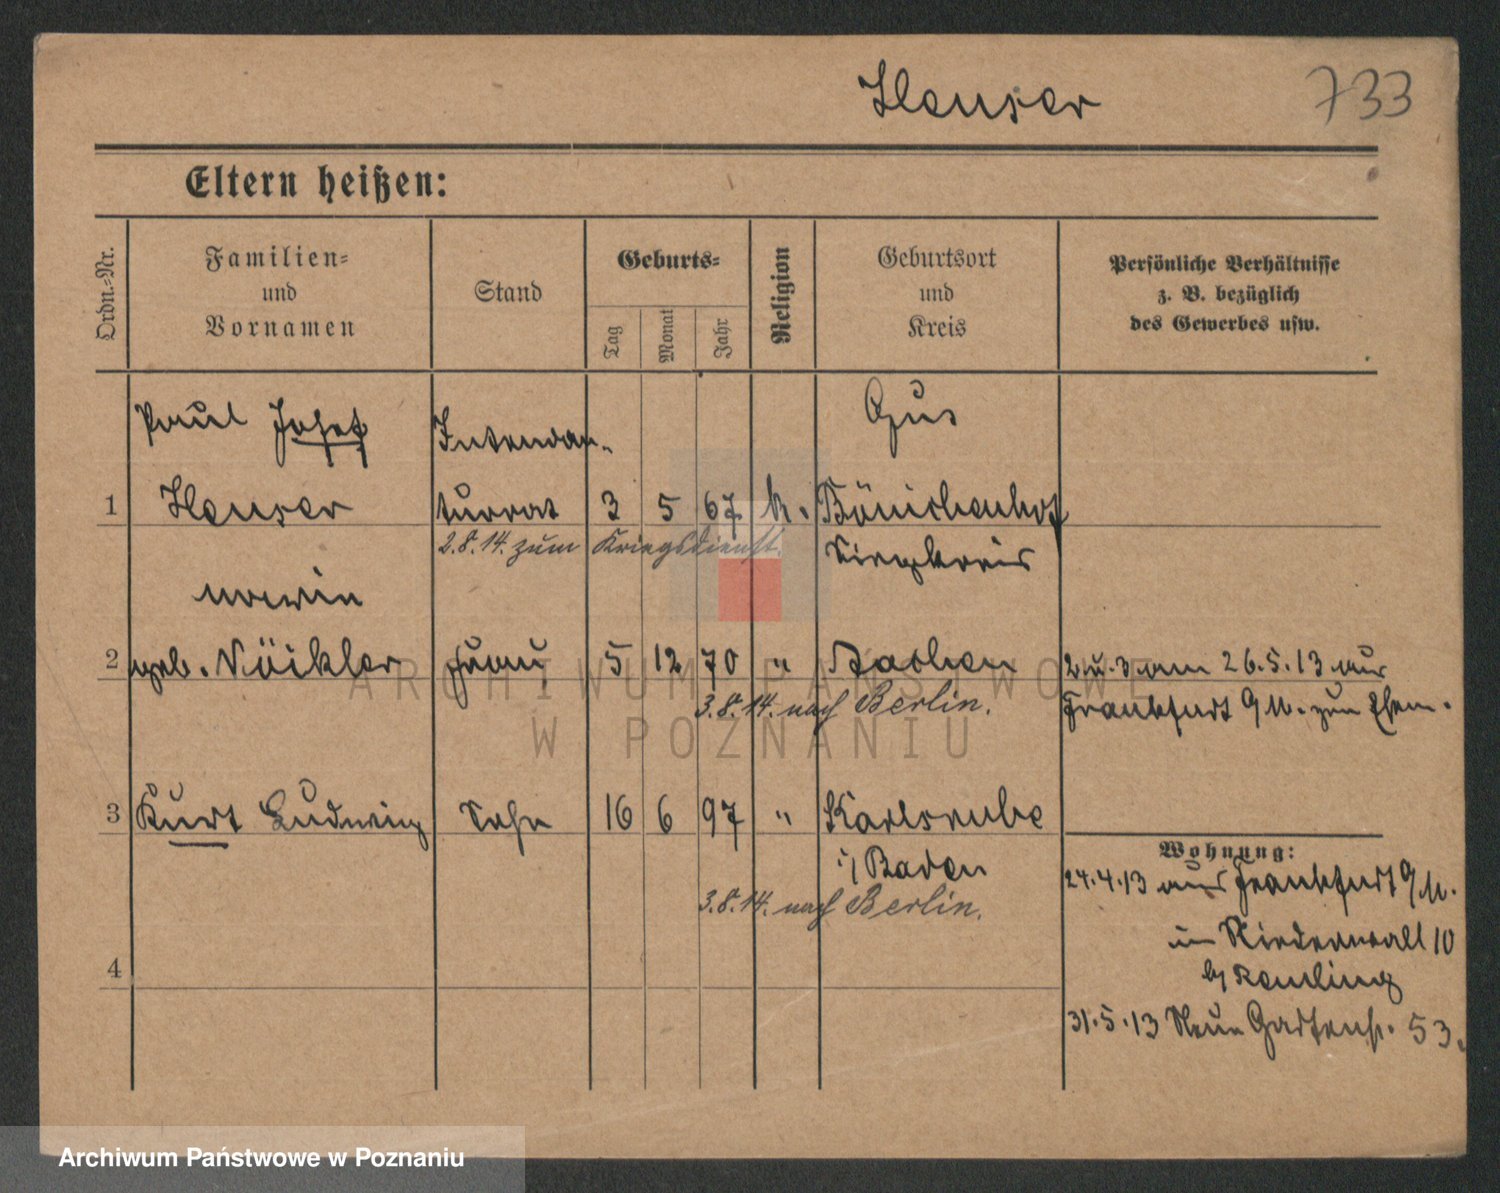 Heuser 733
Eltern heißen:
Ordn.-Nr.
Familien-
und
Vornamen
Stand
Geburts-
Tag
Monat
Jahr
Religion
Geburtsort
und
Kreis
Persönliche Verhältnisse
z. B. bezüglich
des Gewerbes usw.
Paul Josef Intendan- Gus
1 Heuser turrat 3 5 67 k. Bönichenhof
2.8.14. zum Kriegsdienst. Siegkreis
2 geb. Frau 5 12 70 " Aachen 2 u. 3 am 26.5.13 aus
3.8.14. nach Berlin. Frankfurt a/M. zum Ehem.
3 Kurt Ludwig Sohn 16 6 97 " Karlsruhe
i/Baden
3.8.14. nach Berlin.
4
Wohnung:
24.4.13 aus Frankfurt a/M.
in Niederwall 10
by
31.5.13 Neue Gartenstr. 53.
ARCHIWUM PAŃSTWOWE
W POZNANIU
Archiwum Państwowe w Poznaniu